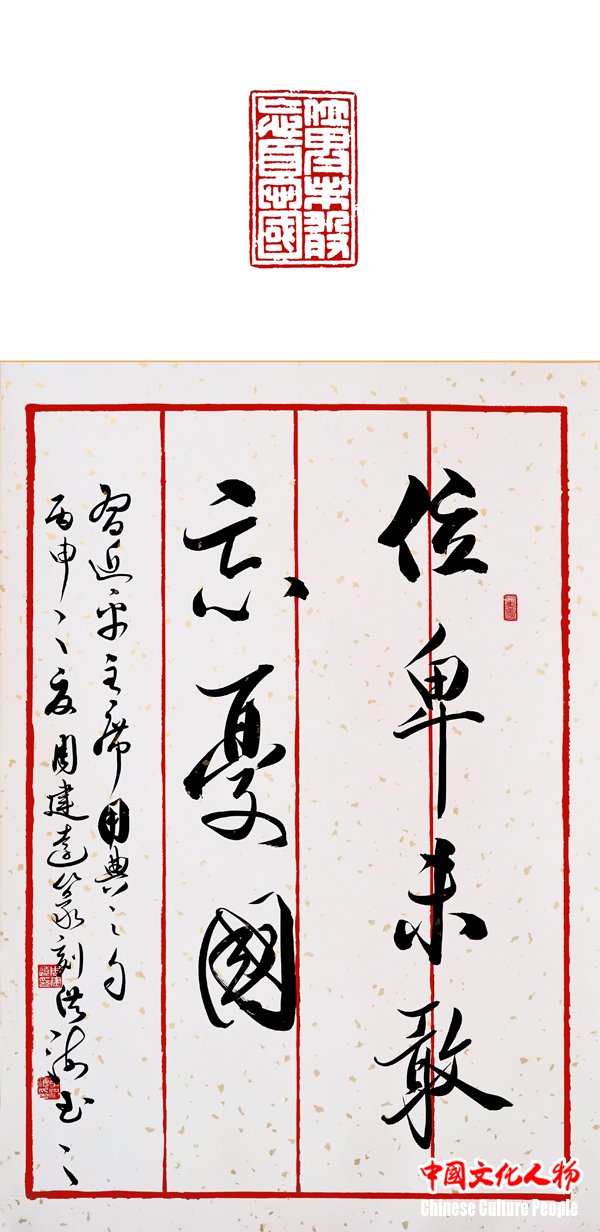 位卑未敢
忘憂國
位卑未敢
忘憂國
習近平主席用典之句
丙申之夏周建遠篆刻洪海书之
中國文化人物
Chinese Culture People